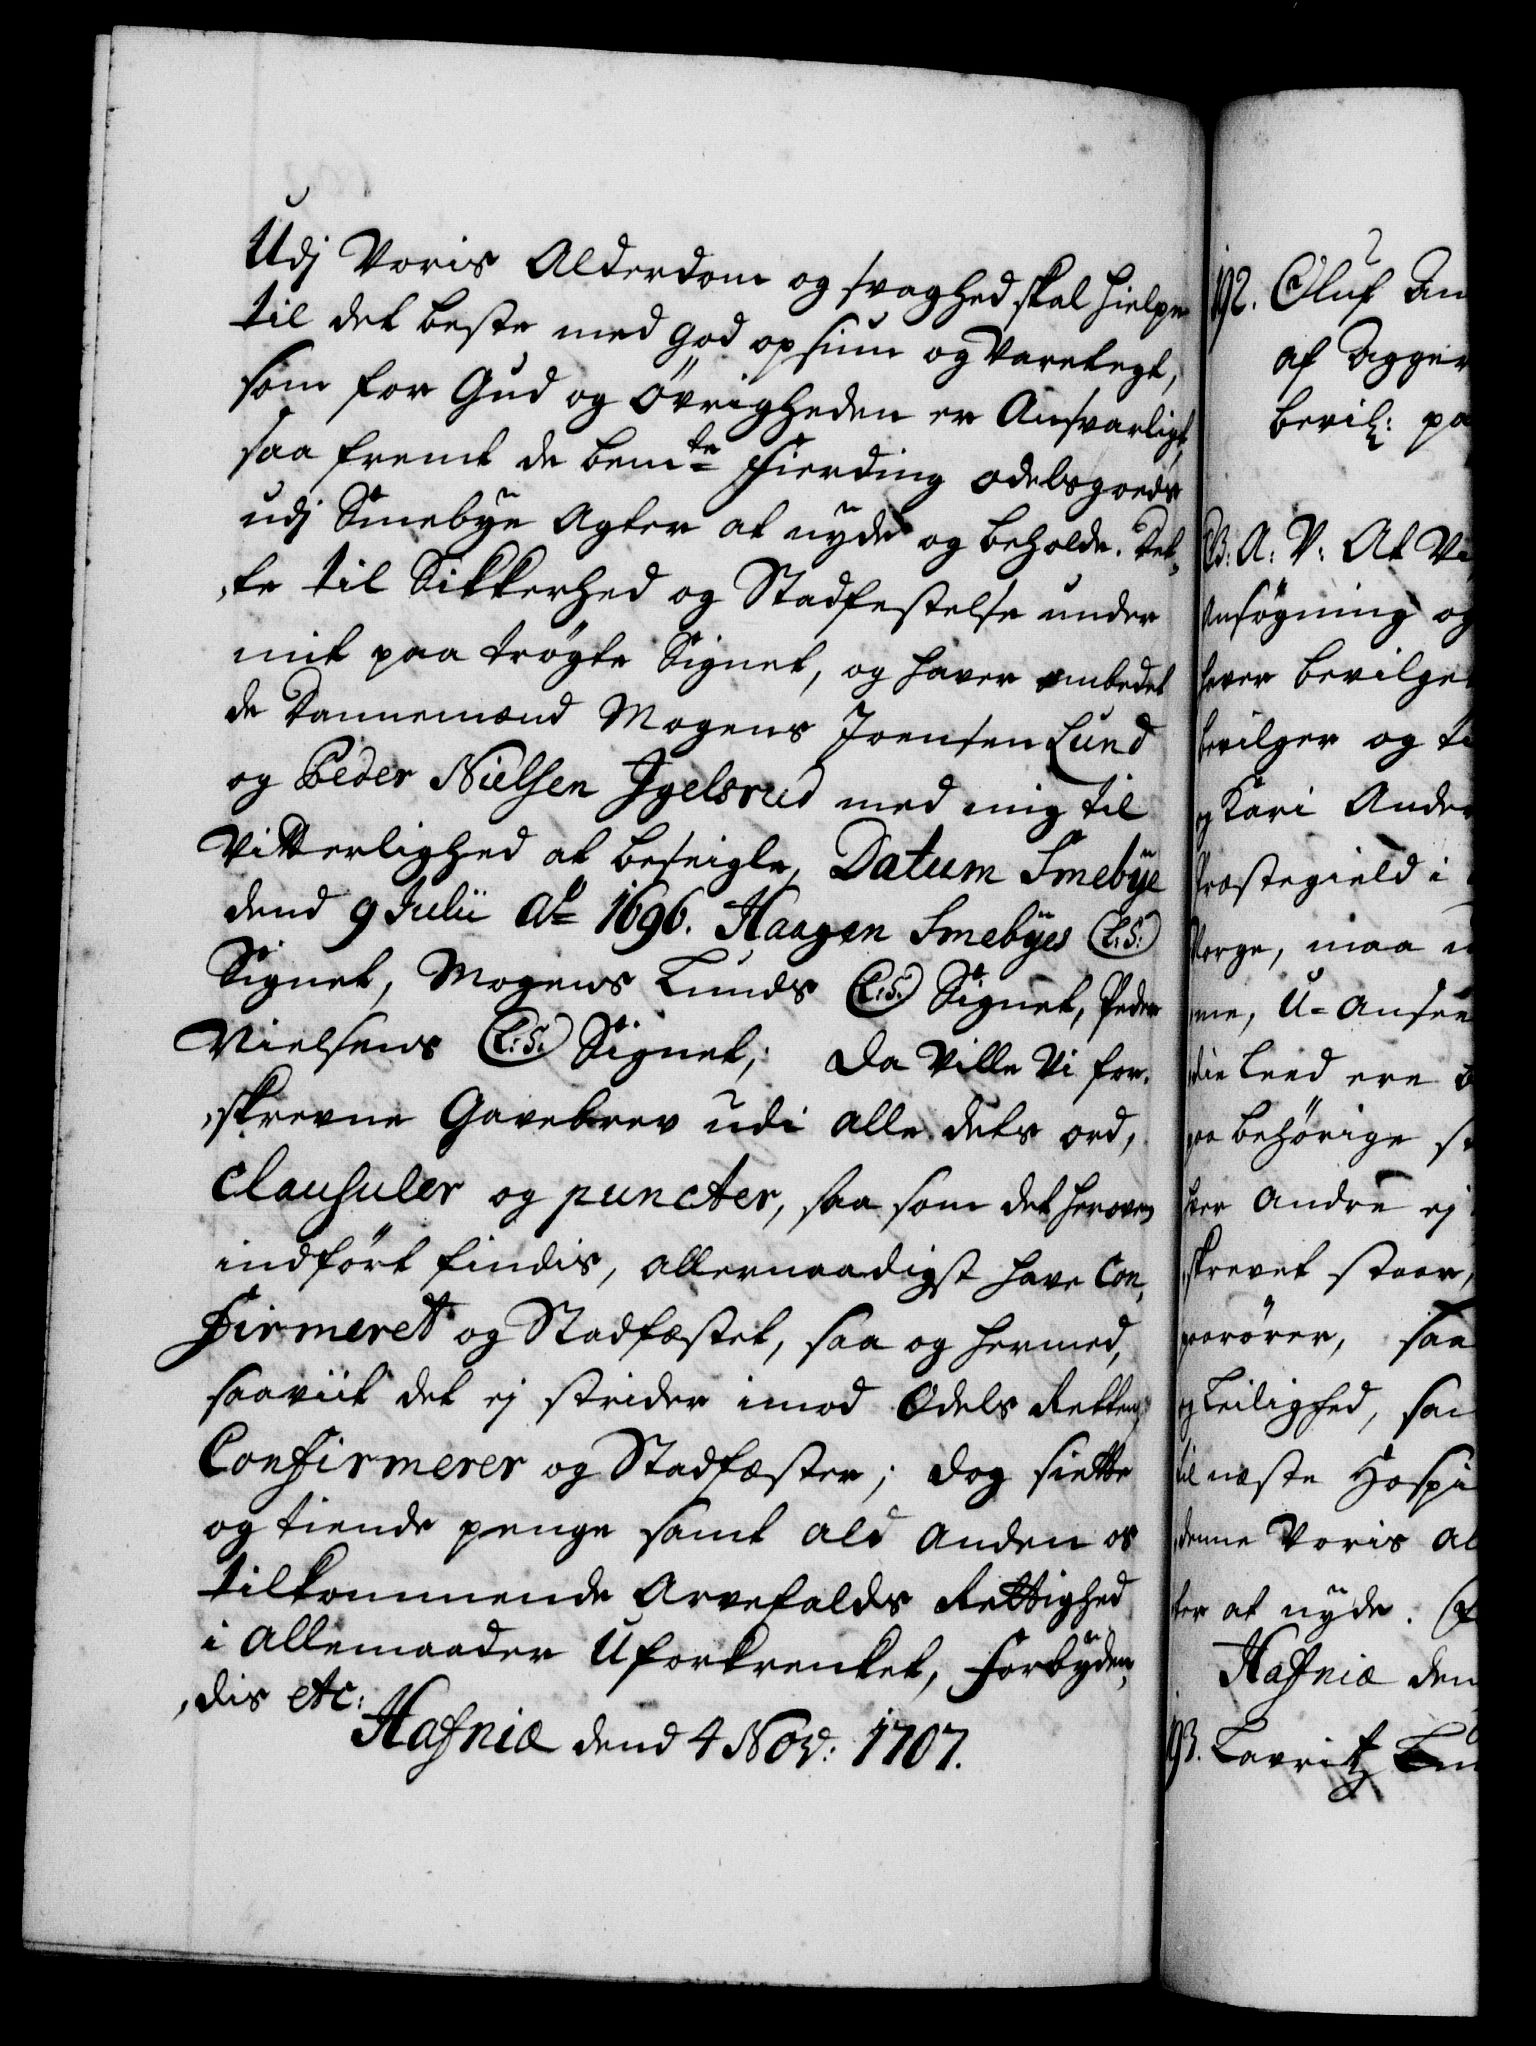 Udj Voris Alderdom og svaghed skal hielpe
til det beste med god opsiun og Varetegt,
som for Gud og Øvrigheden er Ansvarligt,
saa fremt de bemte Fierding odelsgoeds
udj Smebye Agter at nyde og beholde. Det,
,te til Sikkerhed og Stadfestelse under
mit paa trögte Signet, og haver ombedet
de Dannemænd Mogens Joensen Lund
og Peder Nielsen Igelsrud med mig til
Vitterlighed at beseigle, Datum Smebÿe
dend 9 Julii Ao 1696. Haagen Smebÿes (L.S.)
Signet, Mogens Lunds (L.S.) Signet, Peder
Nielsens (L.S.) Signet; Da Ville Vi for,
,skrevne Gavebrev udi alle dets ord,
Clausuler og puncter, saa som det heroven
indført findis, allernaadigst have Con,
firmeret og Stadfæstet, saa og hermed,
saaviit det ej strider imod Odels Retten,
Confirmerer og Stadfæster; dog siette
og tiende penge samt ald anden os
tilkommende Arvefalds Rettighed
i allemaader Uforkrenket, Forbÿden,
,dis etc:
Hafniæ dend 4 Nov: 1707.
192. Oluf An
af Agger
bevil: pa
B: A: V: At Vi
Ansøgning og
haver bevilget
bevilger og ti
og Kari Ander
Præstegield i
Norge, maa
me, U-Ansee
die Leed ere
paa behörige st
ster Andre ej
skrevet staar,
paarörer, saa
og Leilighed, saa
til næste Hospi
denne Voris al
ter at nyde.
Hafniæ den
193. Lavritz